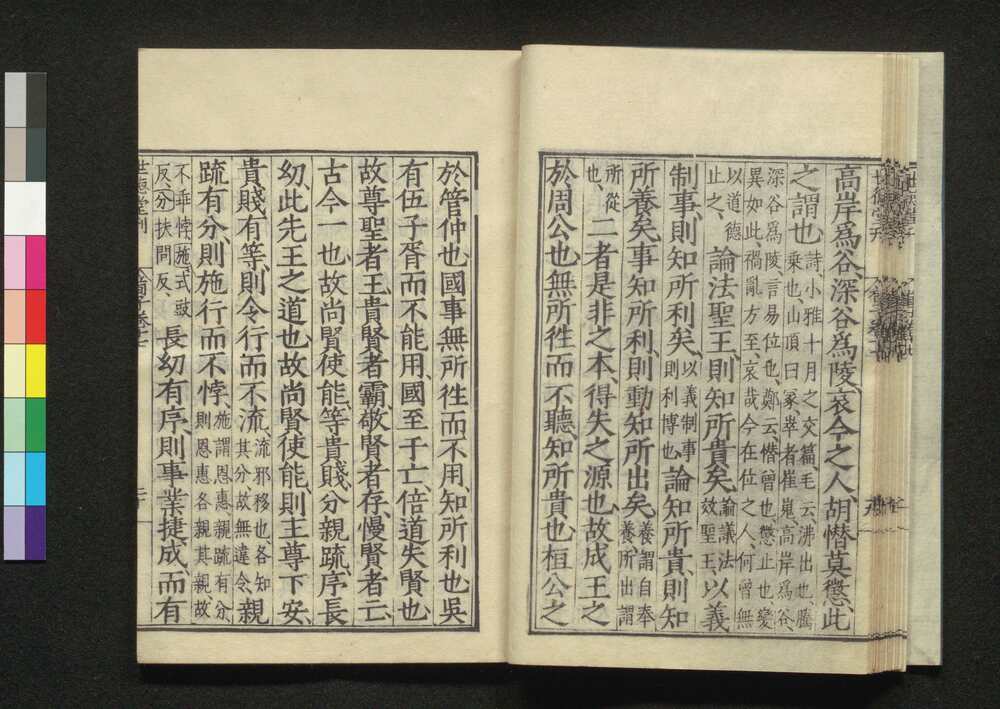 高岸爲谷、深谷爲陵、哀今之人、胡憯莫懲、此
之謂也詩小雅十月之交篇、毛云、沸出也、騰
乘也、山頂曰冢、崒者崔嵬、高岸爲谷、
深谷爲陵、言易位也、鄭云、憯曾也、懲止也、變
異如此、禍亂方至、哀哉今在位之人、何曾無
以道德
止之、論法聖王、則知所貴矣、論議法
效聖王、以義
制事、則知所利矣、以義制事
則利博也論知所貴、則知
所養矣、事知所利、則動知所出矣、養謂自奉
養所出謂
所從
也、二者是非之本、得失之源也、故成王之
於周公也、無所徃而不聽、知所貴也、桓公之
於管仲也、國事無所徃而不用、知所利也、吳
有伍子胥而不能用、國至于亡、倍道失賢也、
故尊聖者王、貴賢者霸、敬賢者存、慢賢者亡、
古今一也、故尚賢使能、等貴賤、分親疏、序長
幼、此先王之道也、故尚賢使能、則主尊下安、
貴賤有等、則令行而不流、流邪移也、各知
其分、故無違令、親
疏有分、則施行而不悖、施謂恩惠、親疏有分、
則恩惠各親其親、故
不乖悖、施、式豉
反、分、扶問反長幼有序、則事業捷成、而有
世德堂刊